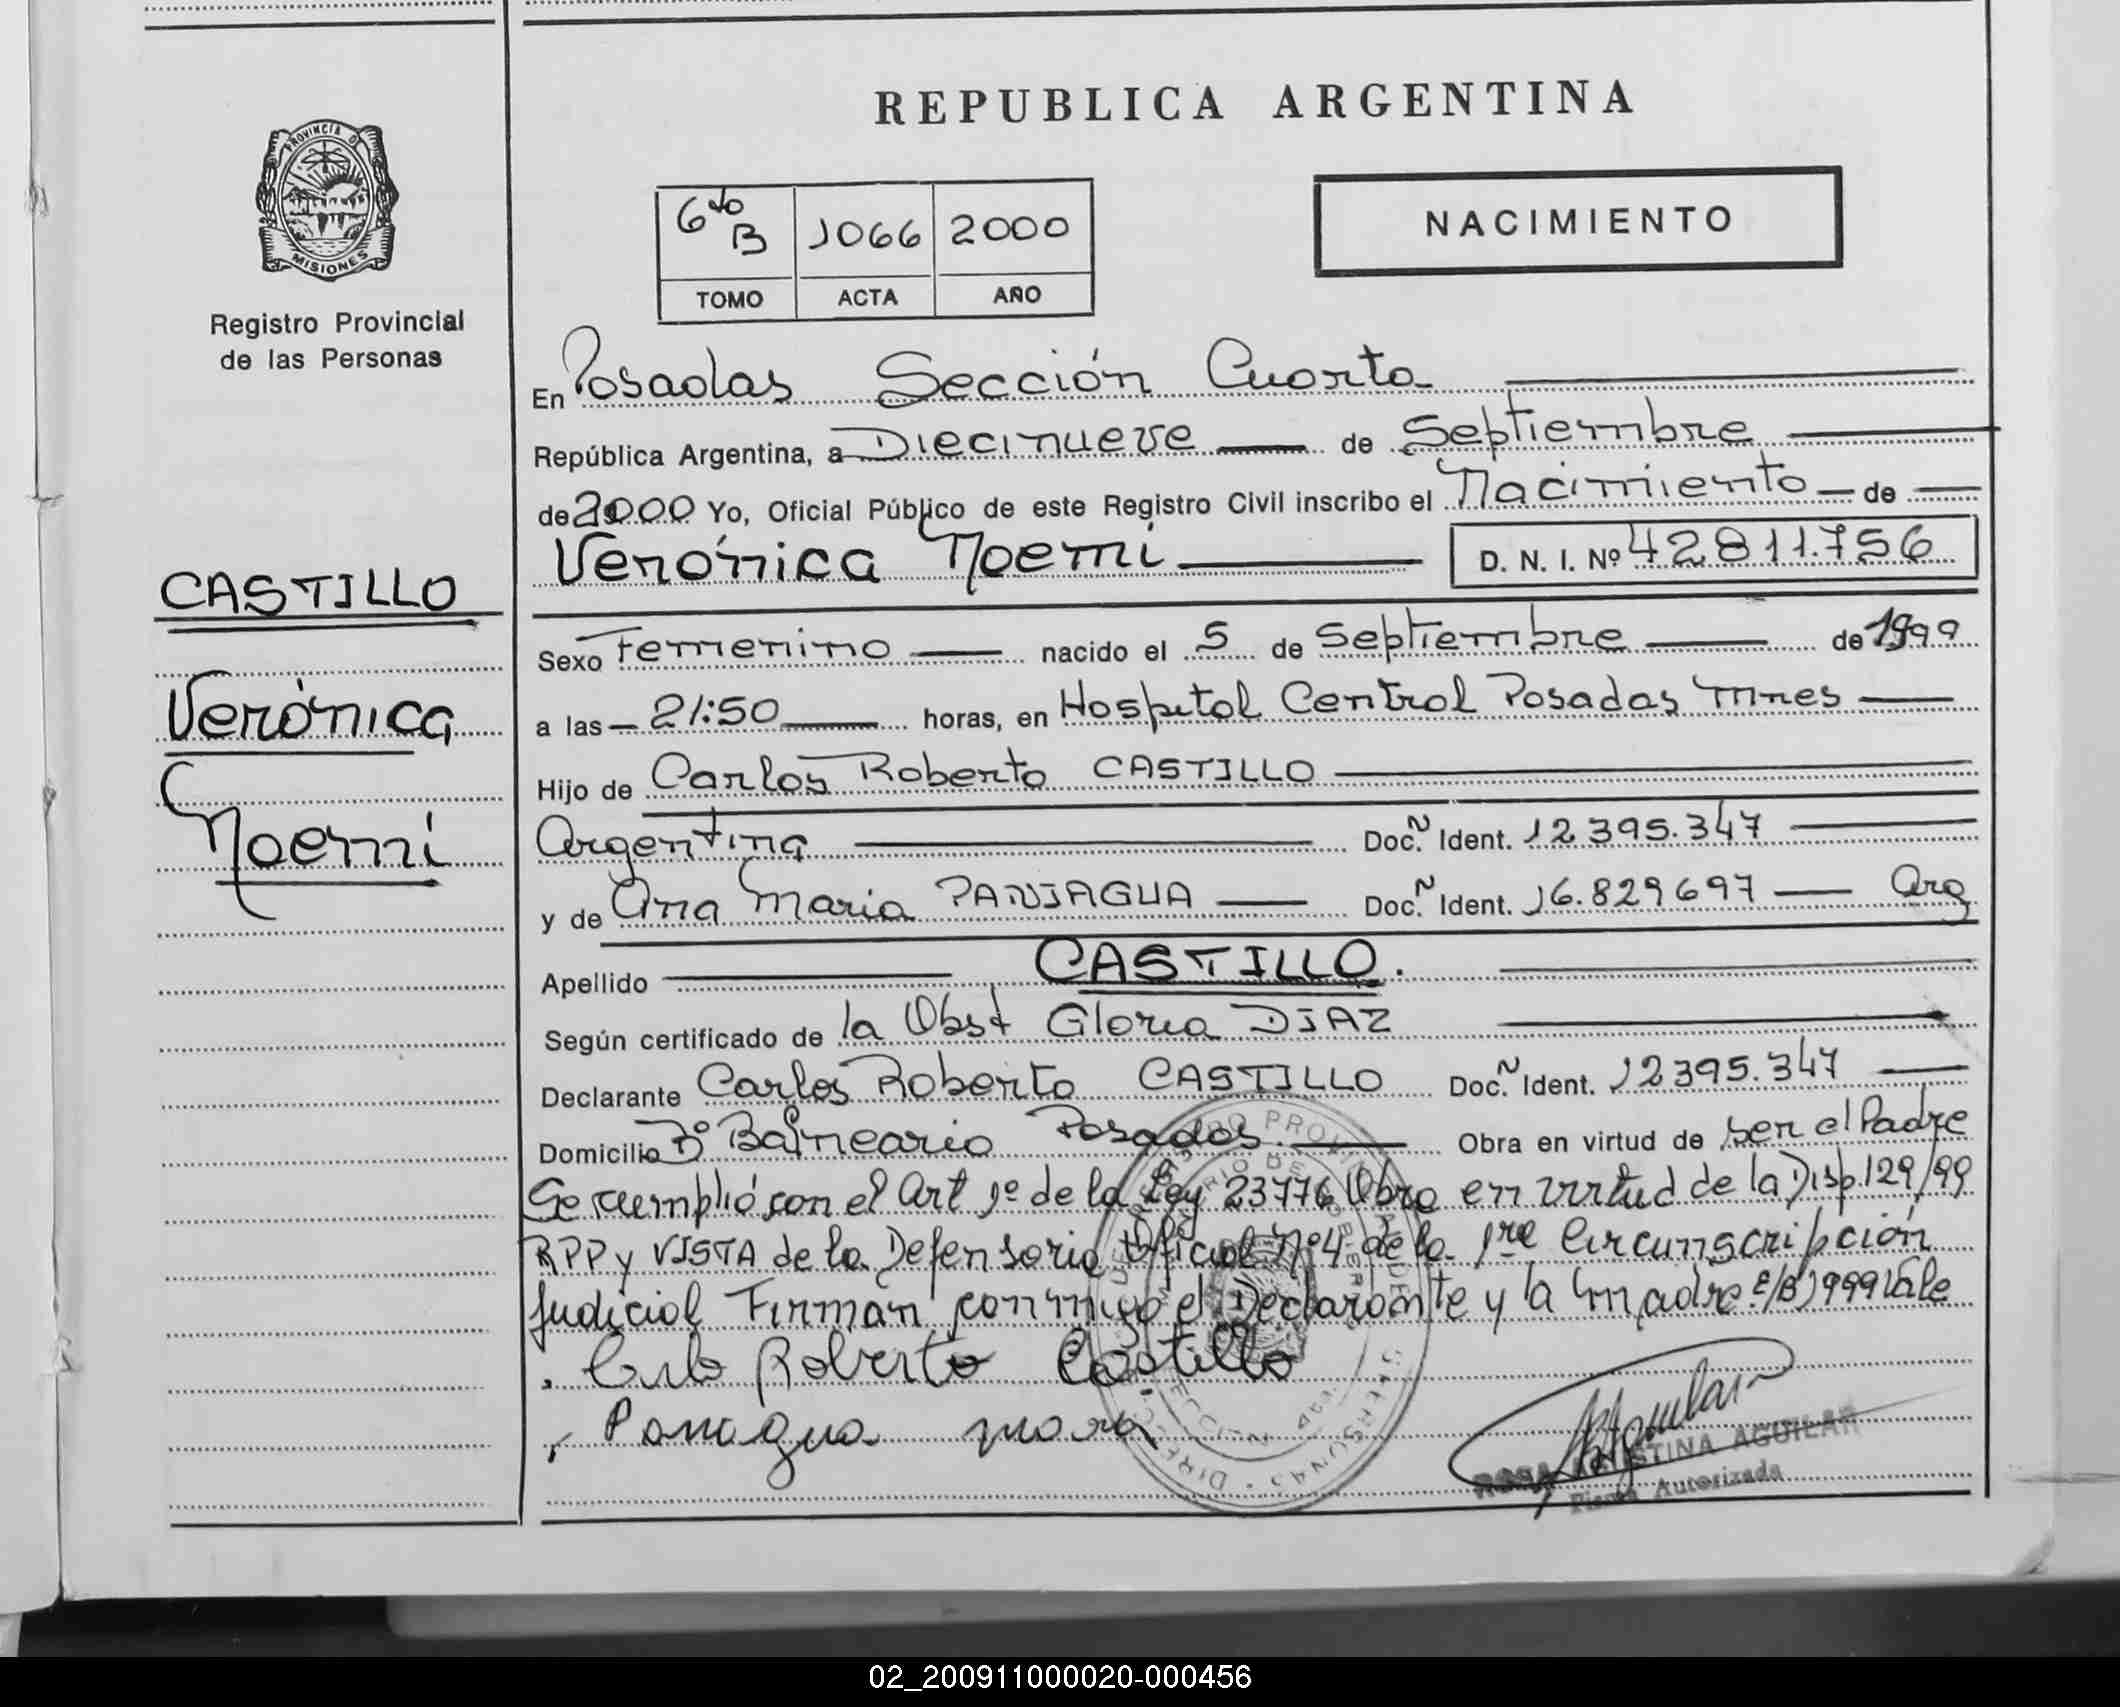 REPUBLICA ARGENTINA
PROVINCIA D
MISIONES
Registro Provincial
de las Personas
6to B 1066 2000
TOMO ACTA AÑO
NACIMIENTO
En Posadas Sección Cuarta
República Argentina, a Diecinueve de Septiembre
de 2000 Yo, Oficial Público de este Registro Civil inscribo el Nacimiento de
Verónica Noemí D. N. I. Nº 42811.756
CASTILLO
Verónica
Noemí
Sexo Femenino nacido el 5 de Septiembre de 1999
a las 21:50 horas, en Hospital Central Posadas Mnes
Hijo de Carlos Roberto CASTILLO
Argentina Doc. N Ident. 12395.347
y de Ana Maria PANIAGUA Doc. N Ident. 16.829697 Arg
Apellido CASTILLO.
Según certificado de la Obst Gloria DIAZ
Declarante Carlos Roberto CASTILLO Doc. N Ident. 12395.347
Domicilio Bº Balneario Posadas Obra en virtud de ser el Padre
Se cumplió con el Art 1º de la Ley 23776 Obra en virtud de la Disp. 129/99
RPP y VISTA de la Defensoria Oficial Nº4 de la 1ra Circunscripción
Judicial Firman conmigo el Declarante y la madre. E/B) 1999 Vale
Carlo Roberto Castillo
Paniagua
ROSA CRISTINA AGUILAR
Firma Autorizada
02_200911000020-000456